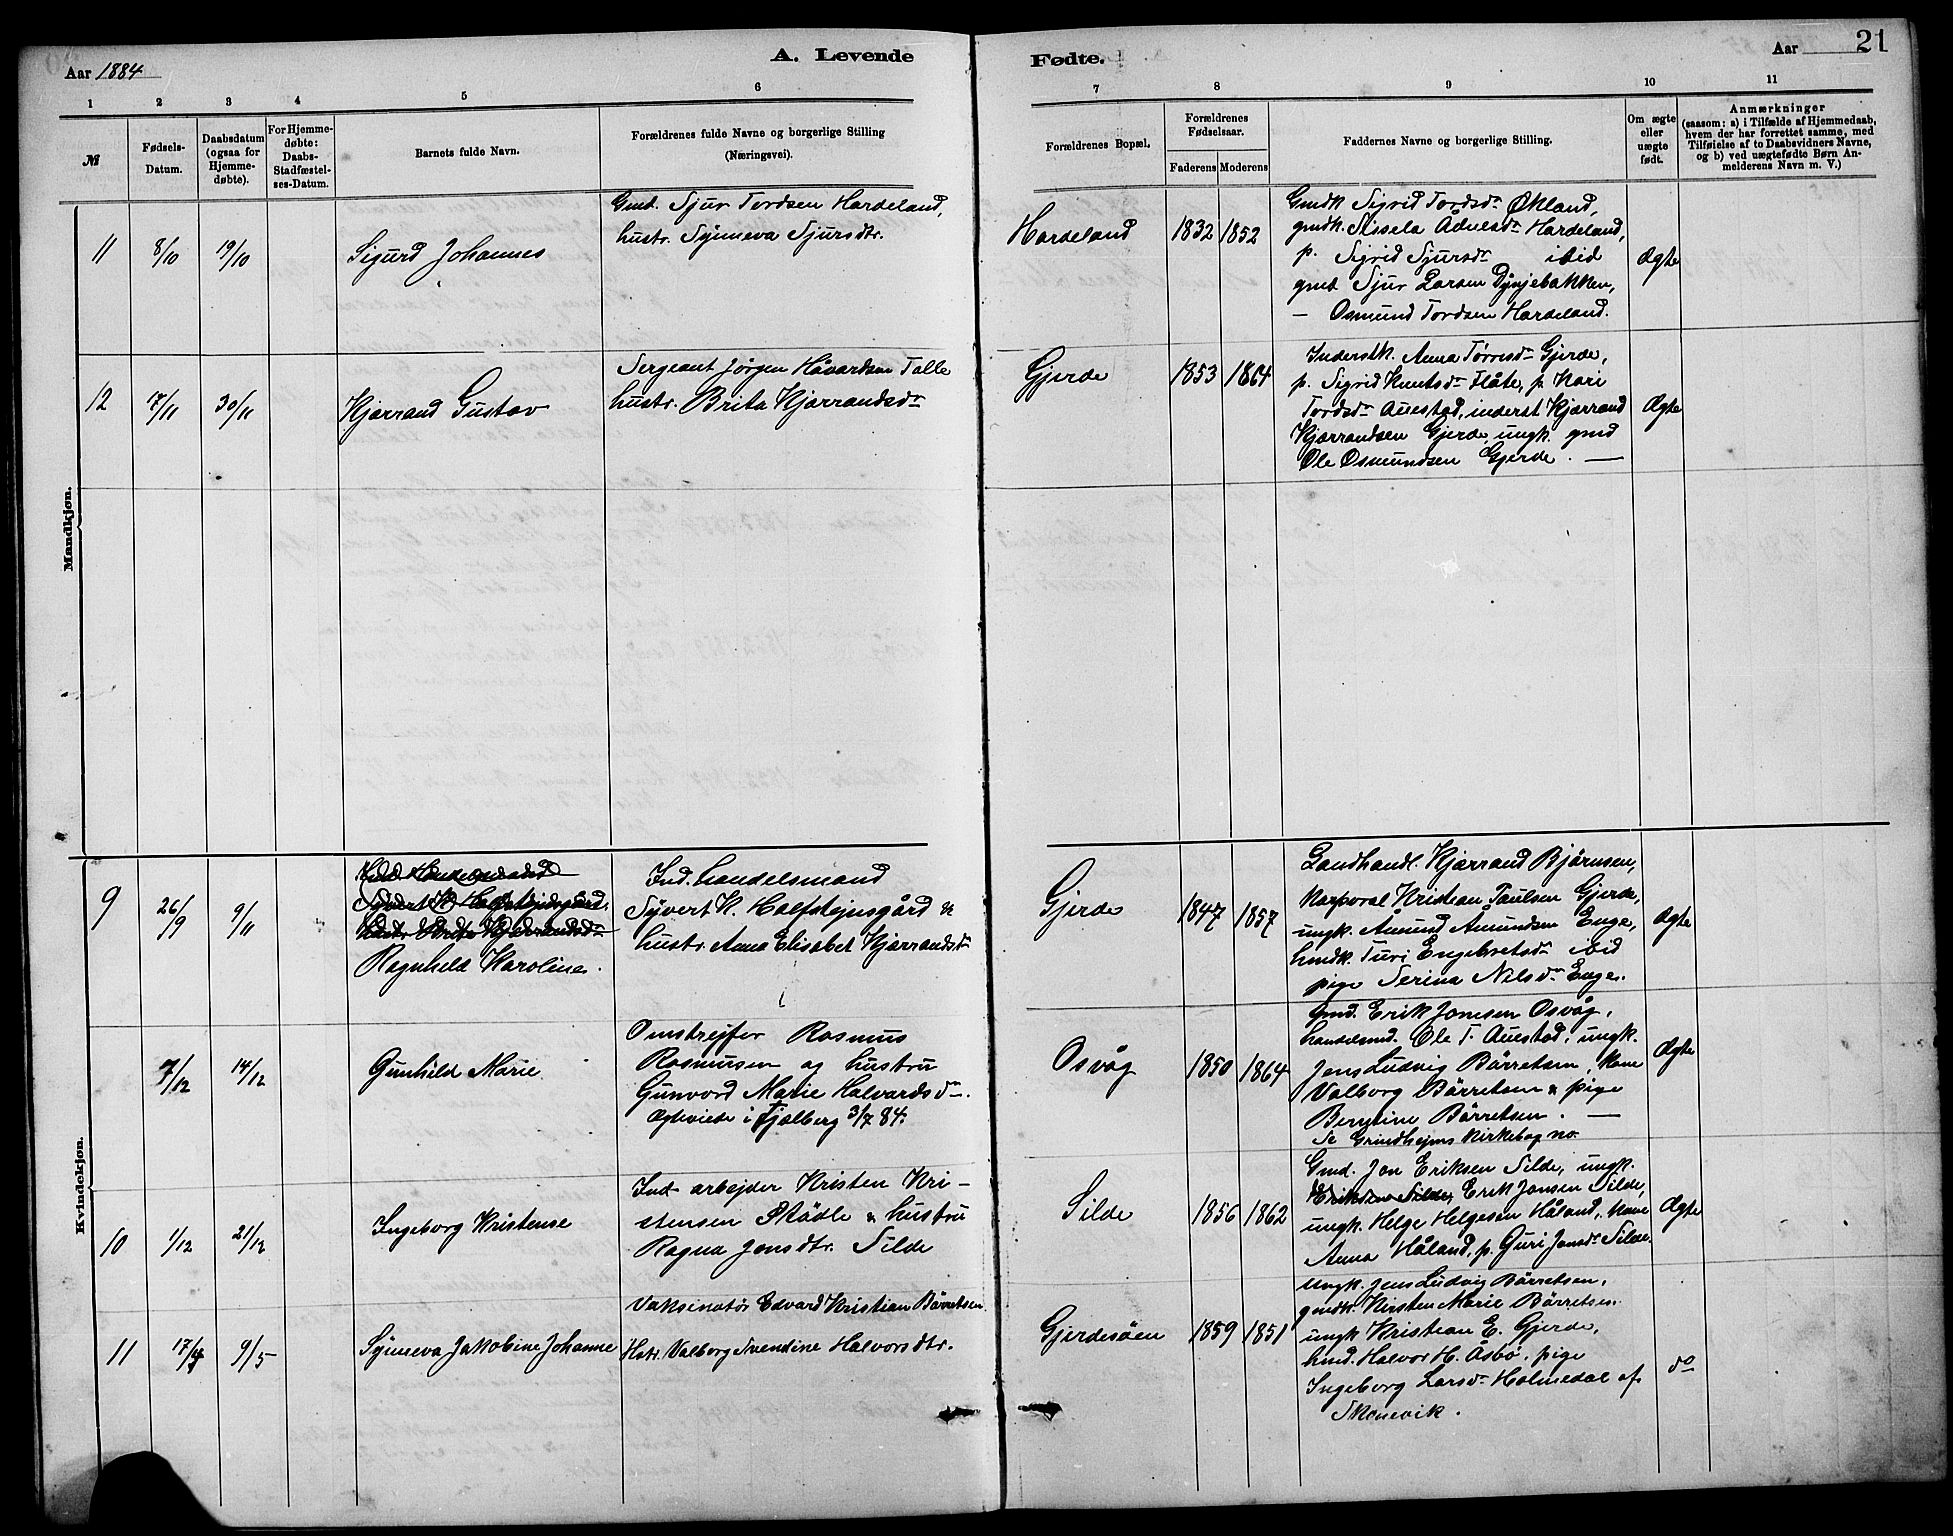 Aar 1884
A. Levende
Fødte.
Aar
21
1
2
3
4
5
6
7
8
9
10
11
№
Fødsels-
Datum.
Daabsdatum
(ogsaa for
Hjemme-
døbte).
For Hjemme-
døbte:
Daabs-
Stadfæstel-
ses-Datum.
Barnets fulde Navn.
Forældrenes fulde Navne og borgerlige Stilling
(Næringsvei).
Forældrenes Bopæl.
Forældrenes
Fødselsaar.
Faderens
Moderens
Faddernes Navne og borgerlige Stilling.
Om ægte
eller
uægte
født.
Anmærkninger
(saasom: a) i Tilfælde af Hjemmedaab,
hvem der har forrettet samme, med
Tilføielse af to Daabsvidners Navne,
og b) ved uægtefødte Børn An-
melderens Navn m. V.)
Mandkjøn.
11
8/10
19/10
Sigurd Johannes
Gmd. Sjur Tordsen Hardeland,
hustr. Synneva Sjursdtr.
Hardeland
1832
1852
Gmdk Sigrid Tordsdr Økland,
gmdk. Sissela Ådnesdr Hardeland,
p. Sigrid Sjursdr ibid
gmd Sjur Larsen Dynjebakken,
— Osmund Tordsen Hardeland.
Ægte
12
7/11
30/11
Kjærrand Gustav
Sergeant Jörgen Håvardsen Tolle
hustr. Brita Kjærrandsdr
Gjerde
1853
1864
Inderstk. Anna Törresdr Gjerde,
p. Sigrid Knutsdr Flåte, p. Kari
Tordsdr Auestad, inderst Kjærrand
Kjærrandsen Gjerde, ungk. gmd
Ole Osmundsen Gjerde. —
Ægte
Kvindekjøn.
9
26/9
9/11
Ind. Handelsmand
Syvert K. Halfstejnsgård,
hustr. Brita Kjærrandsdr
Ragnhild Karoline.
Ind. handelsmand
Syvert K. Halfstejnsgård &
hustr. Anna Elisabet Kjærrandsdr
Gjerde
1847
1857
Landhandl. Kjærrand Björnsen,
Korporal Kristian Paulsen Gjerde,
ungk. Åmund Åmundsen Enge,
hmdk. Turi Engebretsdr ibid
pige Serina Nilsdr Enge.
Ægte
7/12
14/12
Gunhild Marie
Omstrejfer Rasmus
Rasmusen og hustru
Gunvord Marie Halvardsdr.
Ægteviede i Fjælberg 3/7 84.
Osvåg
1850
1864
Gmd. Erik Jonsen Osvåg,
handelsmd. Ole T. Auestad, ungk.
Jens Ludvig Börretsen, Kone
Valborg Börretsen & pige
Berntine Börretsen. —
Se Grindhejms Kirkebog no.
Ægte
10
1/12
21/12
Ingeborg Kristense
Ind. arbejder Kristen Kri-
stensen Stödle & hustru
Ragna Jonsdtr. Silde
Silde
1856
1862
Gmd. Jon Eriksen Silde, ungk.
Eriksen Silde, Erik Jonsen Silde,
ungk. Helge Helgesen Håland, Kone
Anna Håland, p. Guri Jonsdr Silde.
Ægte
11
17/4
9/5
Synneva Jakobine Johanne
Vaksinatör Edvard Kristian Börretsen
Hstr. Valborg Svendine Halvorsdtr.
Gjerdesöen
1859
1851
Ungk. Jens Ludvig Börretsen,
gmdk. Kirsten Marie Börretsen
ungk Kristian E. Gjerde,
hmd. Halvor H. Åsbö, pige
Ingeborg Larsdr Holmedal af
Skonevik.
do